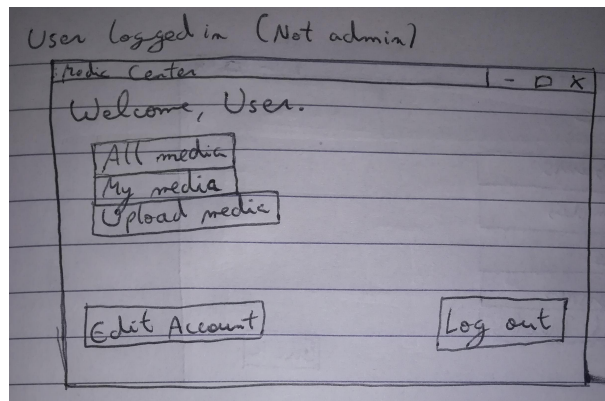 User logged in (Not admin)
Media Center - □ X
Welcome, User.
All media
My media
Upload media
Edit Account Log out